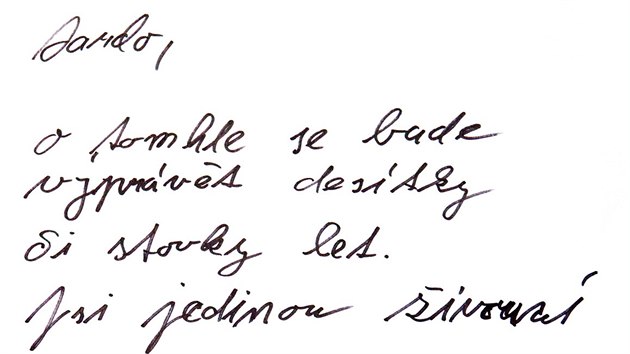 Jardo,
o tomhle se bude
vyprávět desítky
či stovky let.
Jsi jedinou živoucí